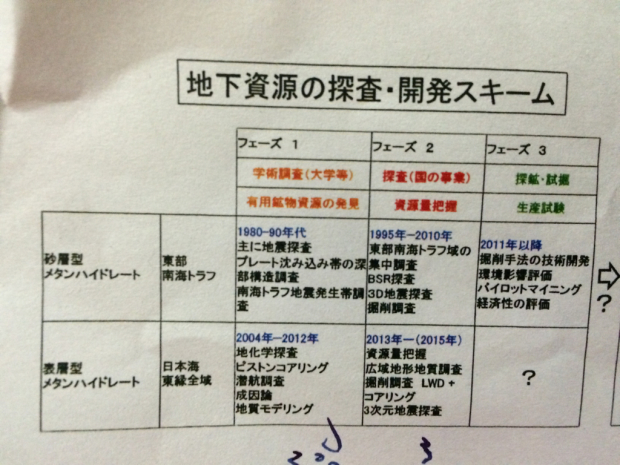 地下資源の探査・開発スキーム
フェーズ 1
フェーズ 2
フェーズ 3
学術調査(大学等)
探査(国の事業)
探鉱・試掘
有用鉱物資源の発見
資源量把握
生産試験
砂層型
メタンハイドレート
東部
南海トラフ
1980-90年代
主に地震探査
プレート沈み込み帯の深
部構造調査
南海トラフ地震発生帯調
査
1995年-2010年
東部南海トラフ域の
集中調査
BSR探査
3D地震探査
掘削調査
2011年以降
掘削手法の技術開発
環境影響評価
パイロットマイニング
経済性の評価
?
表層型
メタンハイドレート
日本海
東縁全域
2004年-2012年
地化学探査
ピストンコアリング
潜航調査
成因論
地質モデリング
2013年-(2015年)
資源量把握
広域地形地質調査
掘削調査 LWD +
コアリング
3次元地震探査
?
3